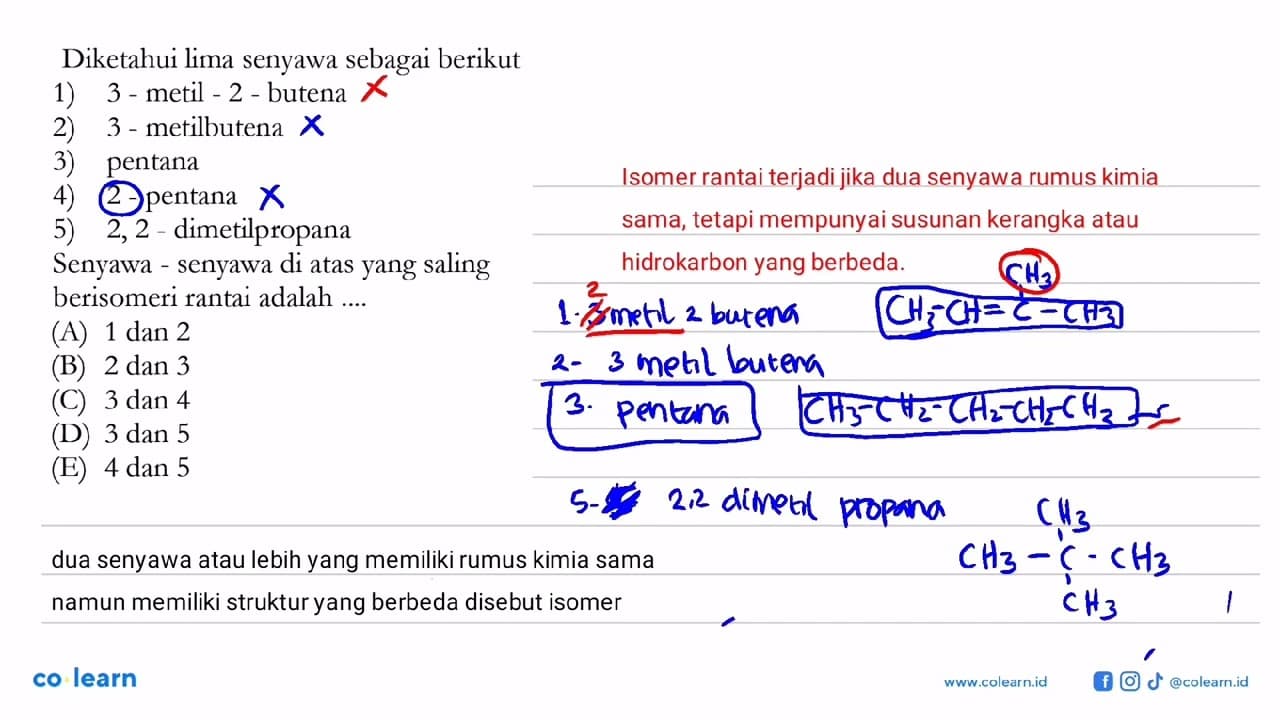 Diketahui lima senyawa sebagai berikut
1) 3 - metil - 2 - butena X
2) 3 - metilbutena X
3) pentana
4) 2 - pentana X
5) 2, 2 - dimetilpropana
Senyawa - senyawa di atas yang saling
berisomeri rantai adalah ....
(A) 1 dan 2
(B) 2 dan 3
(C) 3 dan 4
(D) 3 dan 5
(E) 4 dan 5
Isomer rantai terjadi jika dua senyawa rumus kimia
sama, tetapi mempunyai susunan kerangka atau
hidrokarbon yang berbeda.
CH3
2
1. 3 metil 2 butena CH3-CH=C-CH3
2- 3 metil butena
3. pentana CH3-CH2-CH2-CH2-CH3
5- 2,2 dimetil propana
CH3
CH3 - C - CH3
CH3
dua senyawa atau lebih yang memiliki rumus kimia sama
namun memiliki struktur yang berbeda disebut isomer
co learn
www.colearn.id
@colearn.id